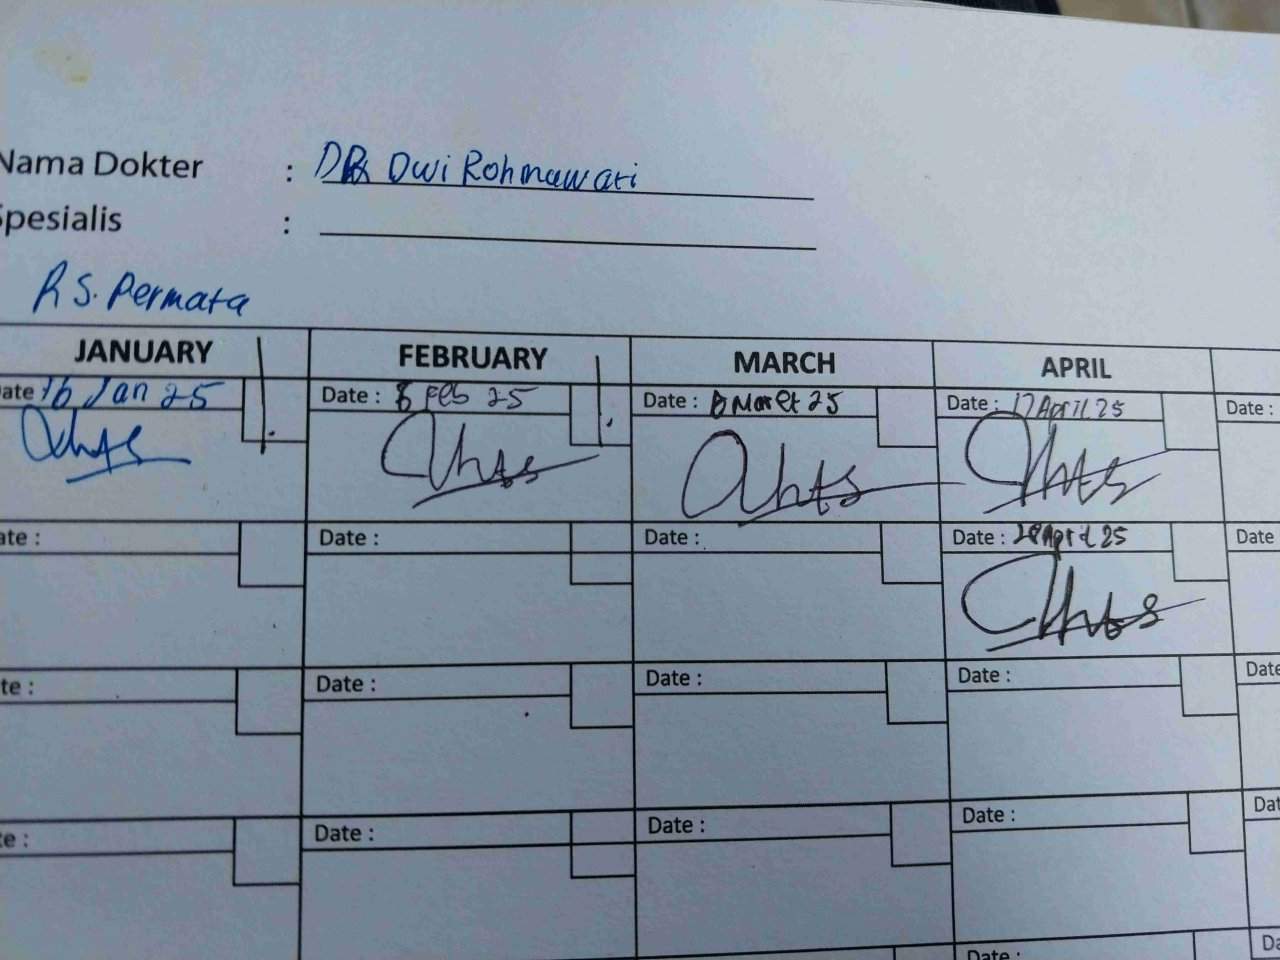 Nama Dokter : DR Dwi Rohmawati
Spesialis :
RS. Permata
JANUARY FEBRUARY MARCH APRIL
Date 16 Jan 25 Date : Feb 25 Date : Maret 25 Date : 17 April 25 Date :
Date : Date : Date : Date : 28 April 25 Date
Date : Date : Date : Date : Date
Date : Date : Date : Date : Date
Date : Da